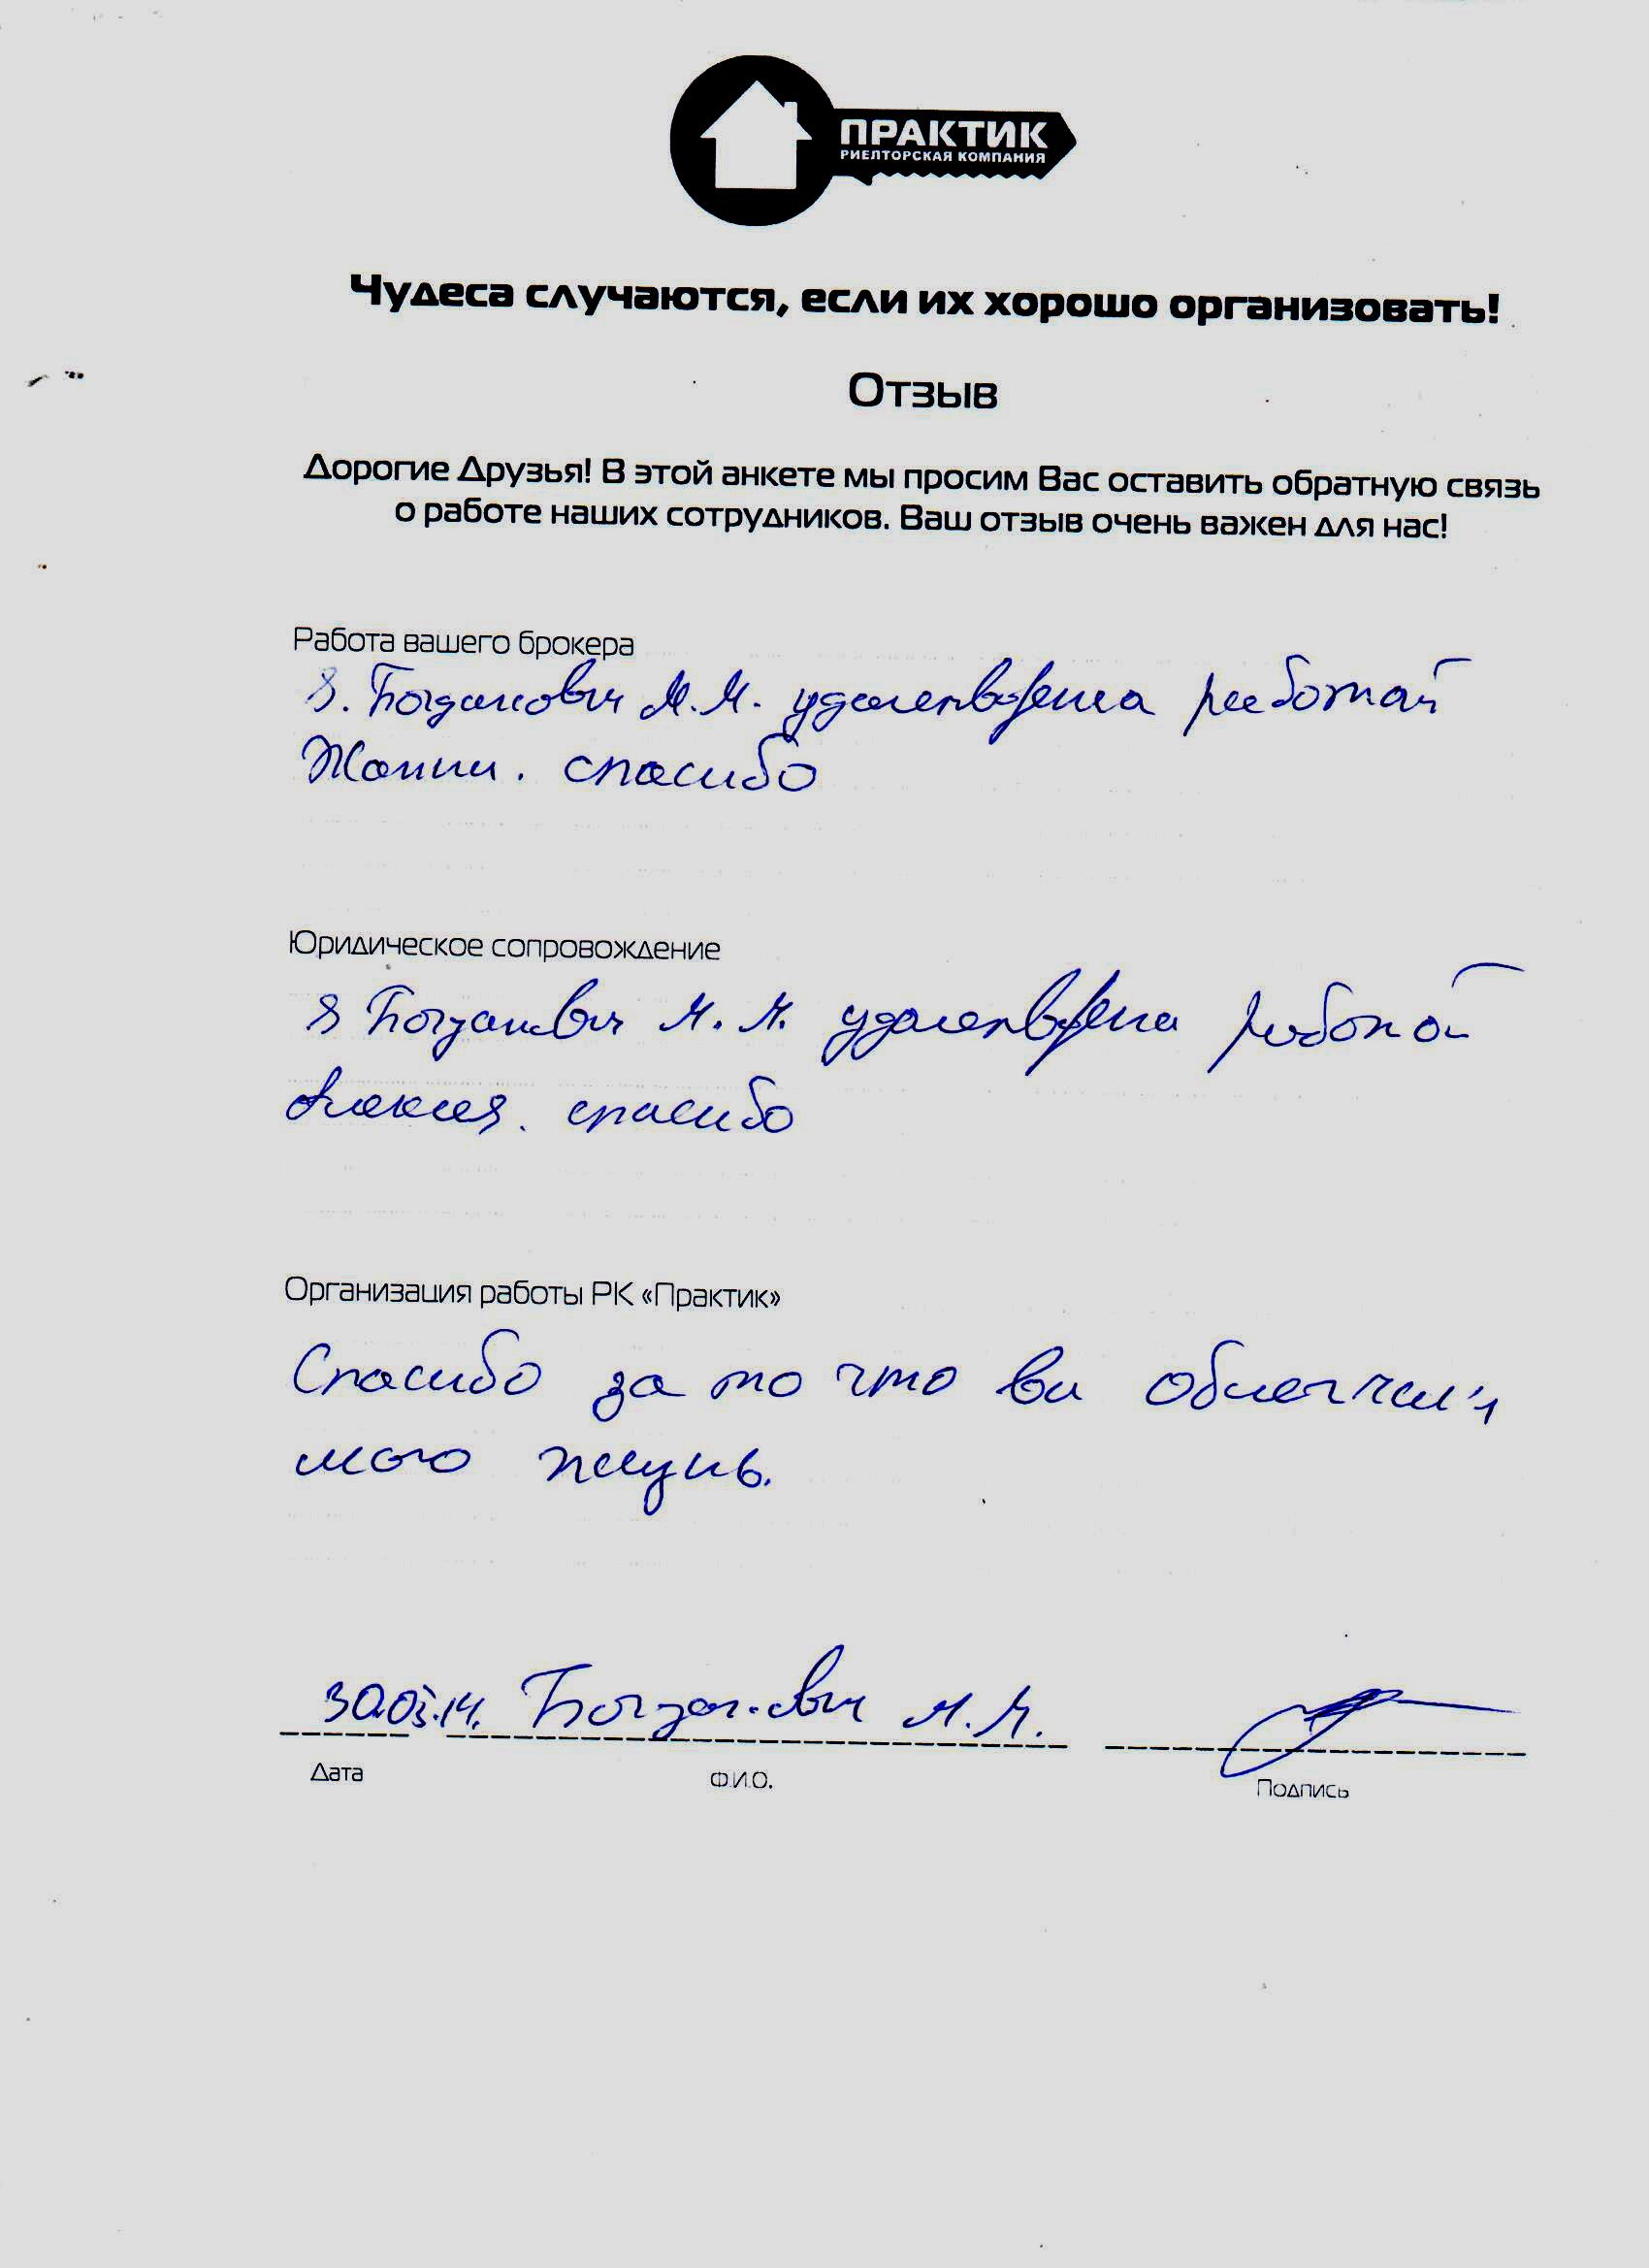 ПРАКТИК
РИЕЛТОРСКАЯ КОМПАНИЯ
Чудеса случаются, если их хорошо организовать!
Отзыв
Дорогие Друзья! В этой анкете мы просим Вас оставить обратную связь
о работе наших сотрудников. Ваш отзыв очень важен для нас!
Работа вашего брокера
Я. Богданович М.М. удовлетворена работай
Жанни. спасибо
Юридическое сопровождение
Я Богданович М.М. удовлетворена работой
Алексея. спасибо
Организация работы РК «Практик»
Спасибо за то что ви облегчали
мою жизнь.
30.03.14. Богданович М.М.
Дата Ф.И.О. Подпись